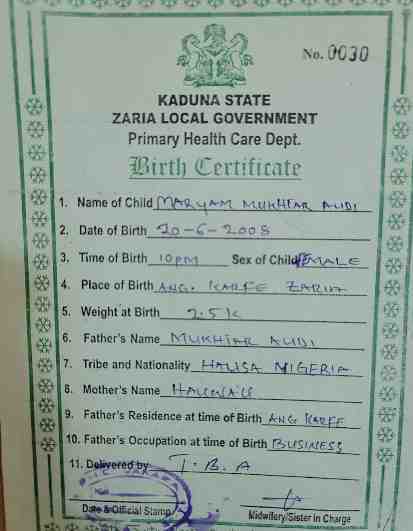 No. 0030
KADUNA STATE
ZARIA LOCAL GOVERNMENT
Primary Health Care Dept.
Birth Certificate
1. Name of Child MARYAM MUKHTAR ALIDI
2. Date of Birth 20-6-2008
3. Time of Birth 10pm Sex of Child FEMALE
4. Place of Birth ANG. KARFE ZARIA
5. Weight at Birth 2.5K
6. Father's Name MUKHTAR ALIDI
7. Tribe and Nationality HAUSA NIGERIA
8. Mother's Name
9. Father's Residence at time of Birth ANG KARFE
10. Father's Occupation at time of Birth BUSINESS
11. Delivered by T.B.A
Date & Official Stamp
Midwifery/Sister in Charge